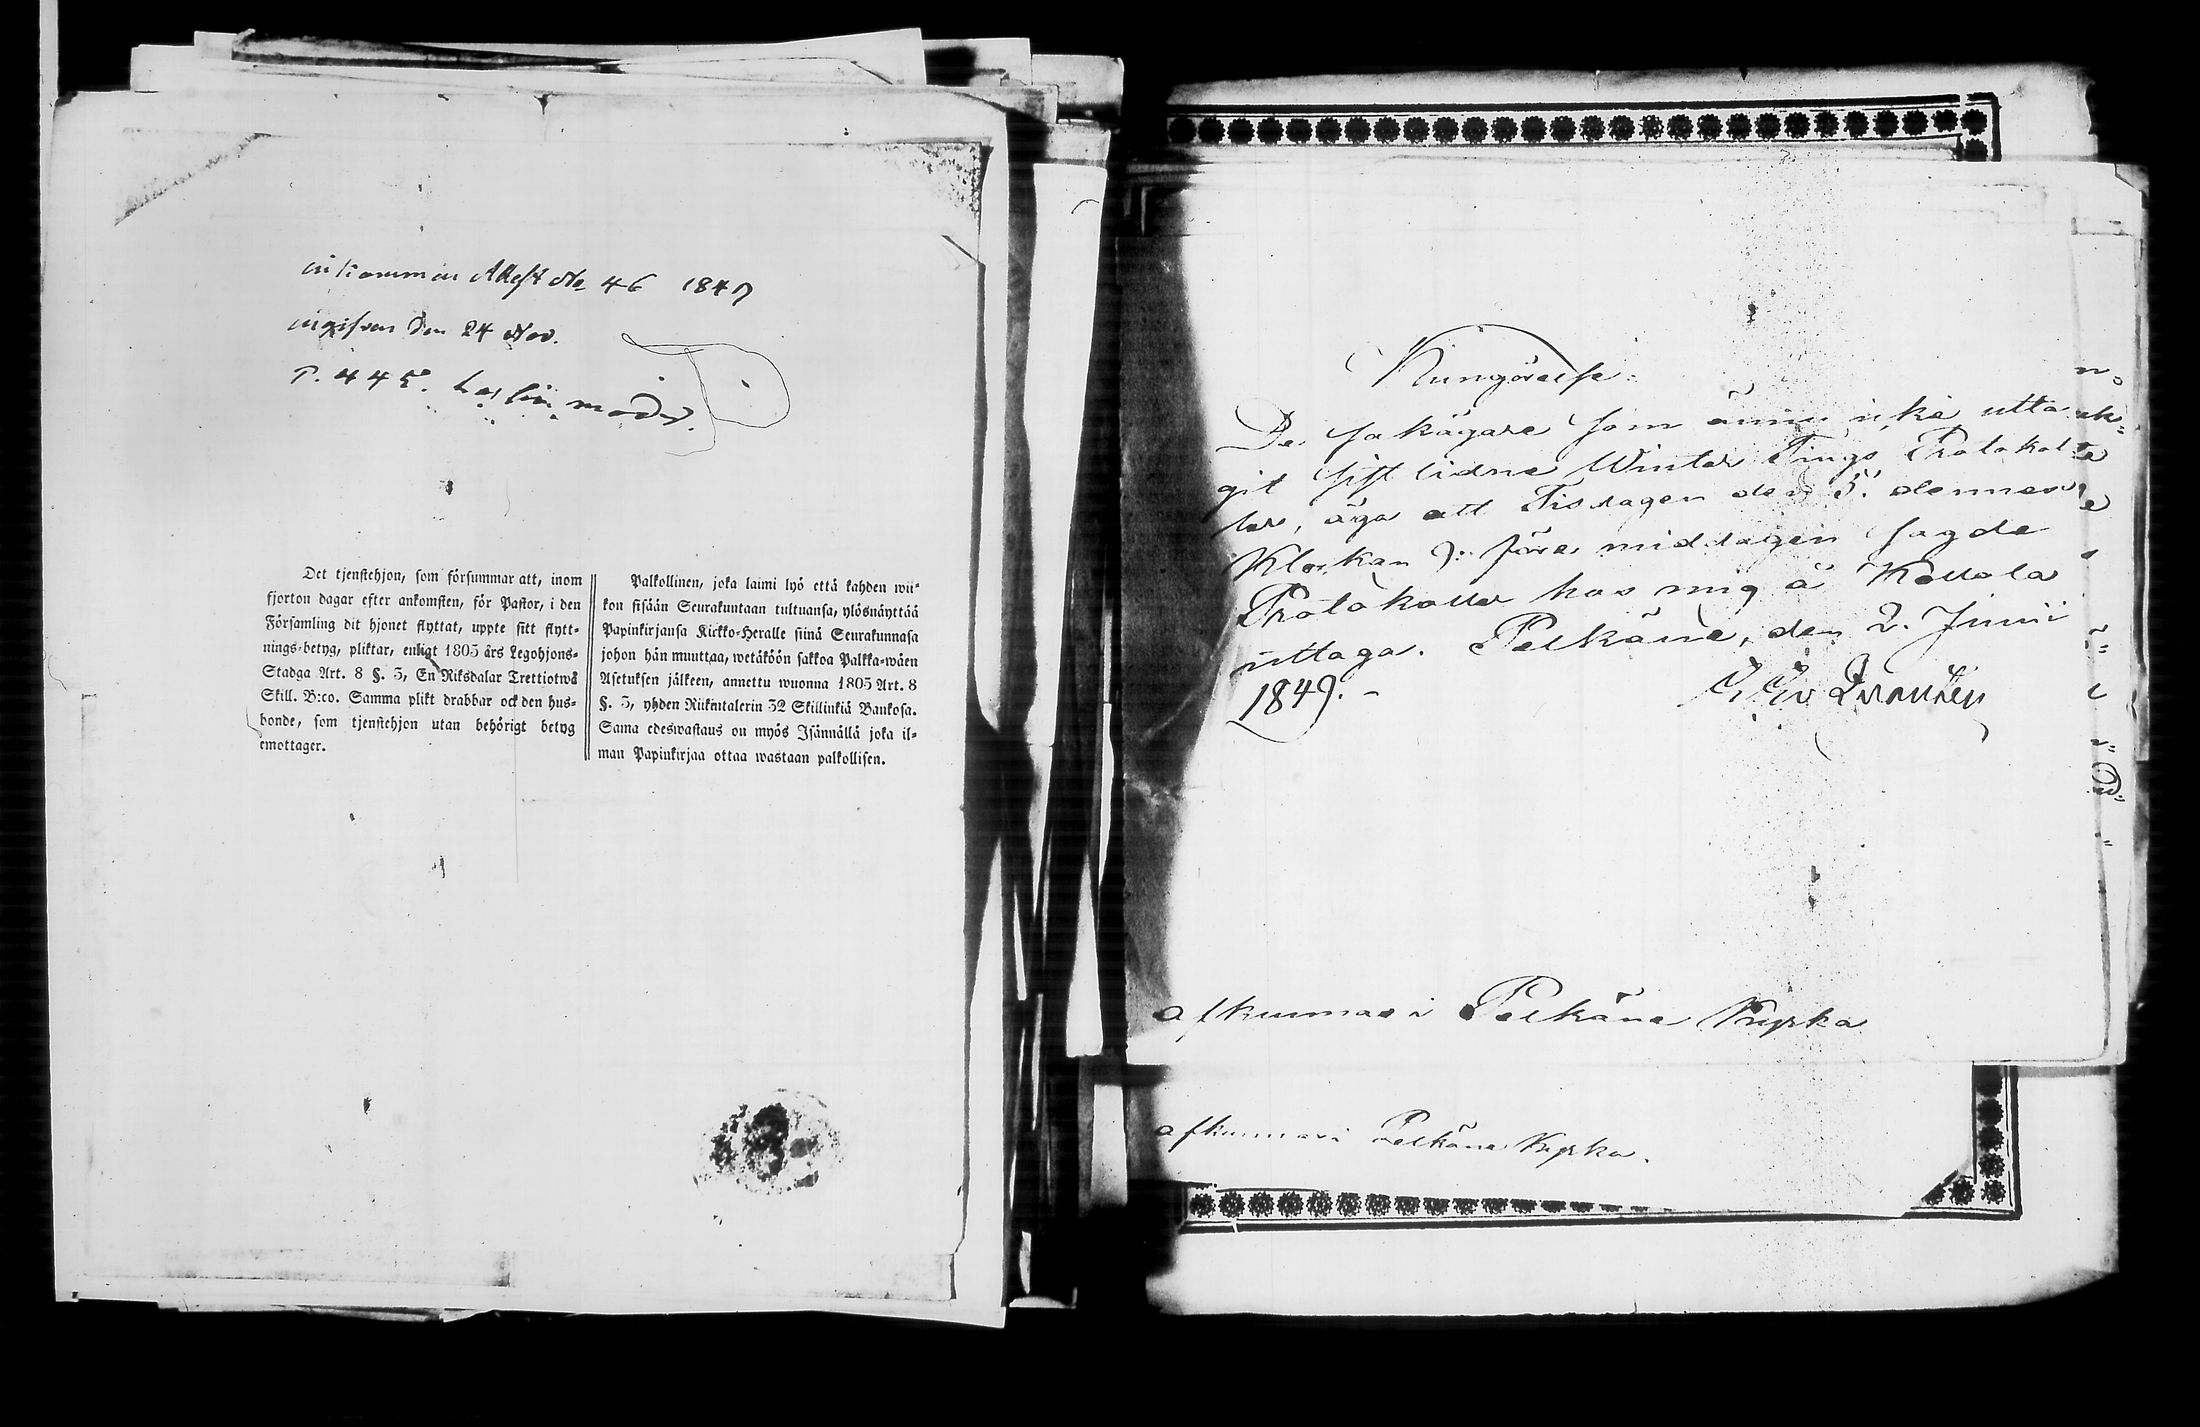 inkommen Attest No 46 1847
ingifven den 24 Nov.
P. 445.
Det tjenstehjon, som försummar att, inom
fjorton dagar efter ankomsten, för Pastor, i den
Församling dit hjonet flyttat, uppte sitt flytt-
nings-betyg, pliktar, enligt 1805 års Legohjons-
Stadga Art. 8 §. 5, En Riksdalar Trettiotwå
Skill. B:co. Samma plikt drabbar ock den hus-
bonde, som tjenstehjon utan behörigt betyg
emottager.
Palkollinen, joka laimi lyö että kahden wii-
kon sisään Seurakuntaan tultuansa, ylösnäyttää
Papinkirjansa Kirkko-Heralle siinä Seurakunnasa
johon hän muuttaa, wetäköön sakkoa Palkka-wäen
Asetuksen jälkeen, annettu wuonna 1805 Art. 8
§. 5, yhden Riikintalerin 32 Skillinkiä Bankosa.
Sama edeswastaus on myös Isännällä joka il-
man Papinkirjaa ottaa wastaan palkollisen.
Kungörelse.
De sakägare som ännu icke utta
git sistlidne Winter Tings Protokol
ler, äga att Tisdagen den 5. dennes
Klockan 9. före middagen sagde
Protokoller hos mig å Kollola
uttaga. Pelkäne, den 2. Junii
1849. -
afkunnas i Pelkäne Kyrka
afkunnas i Pelkäne Kyrka.